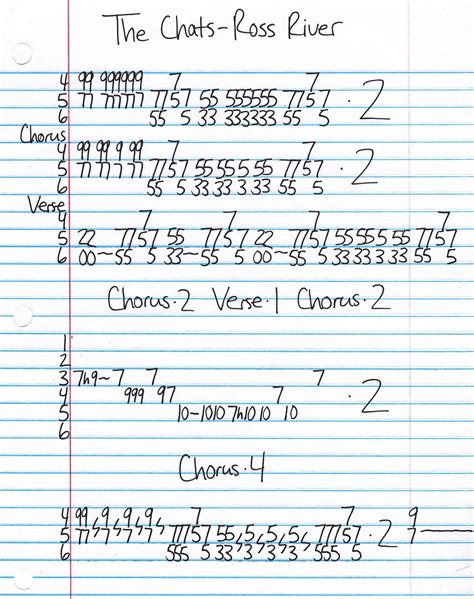 The Chats-Ross River
4 99 999999 7 7
5 77 777777 7757 55 555555 7757 · 2
6 55 5 33 333333 55 5
Chorus
4 99 99 9 99 7 7
5 77 77 7 77 7757 55 55 5 55 7757 · 2
6 55 5 33 33 3 33 55 5
Verse
4 7 7 7 7
5 22 7757 55 7757 22 7757 55 55 5 55 7757
6 00~55 5 33~55 5 00~55 5 33 33 3 33 55 5
Chorus·2 Verse·1 Chorus·2
1
2
3 7h9~7 7 7
4 999 97 7 · 2
5 10-1010 7h10 10 10
6
Chorus·4
4 99 9 9 9 7 7 9
5 77 7 7 7 77757 55 5 5 5 77757 · 2 7
6 555 5 33 3 3 3 555 5